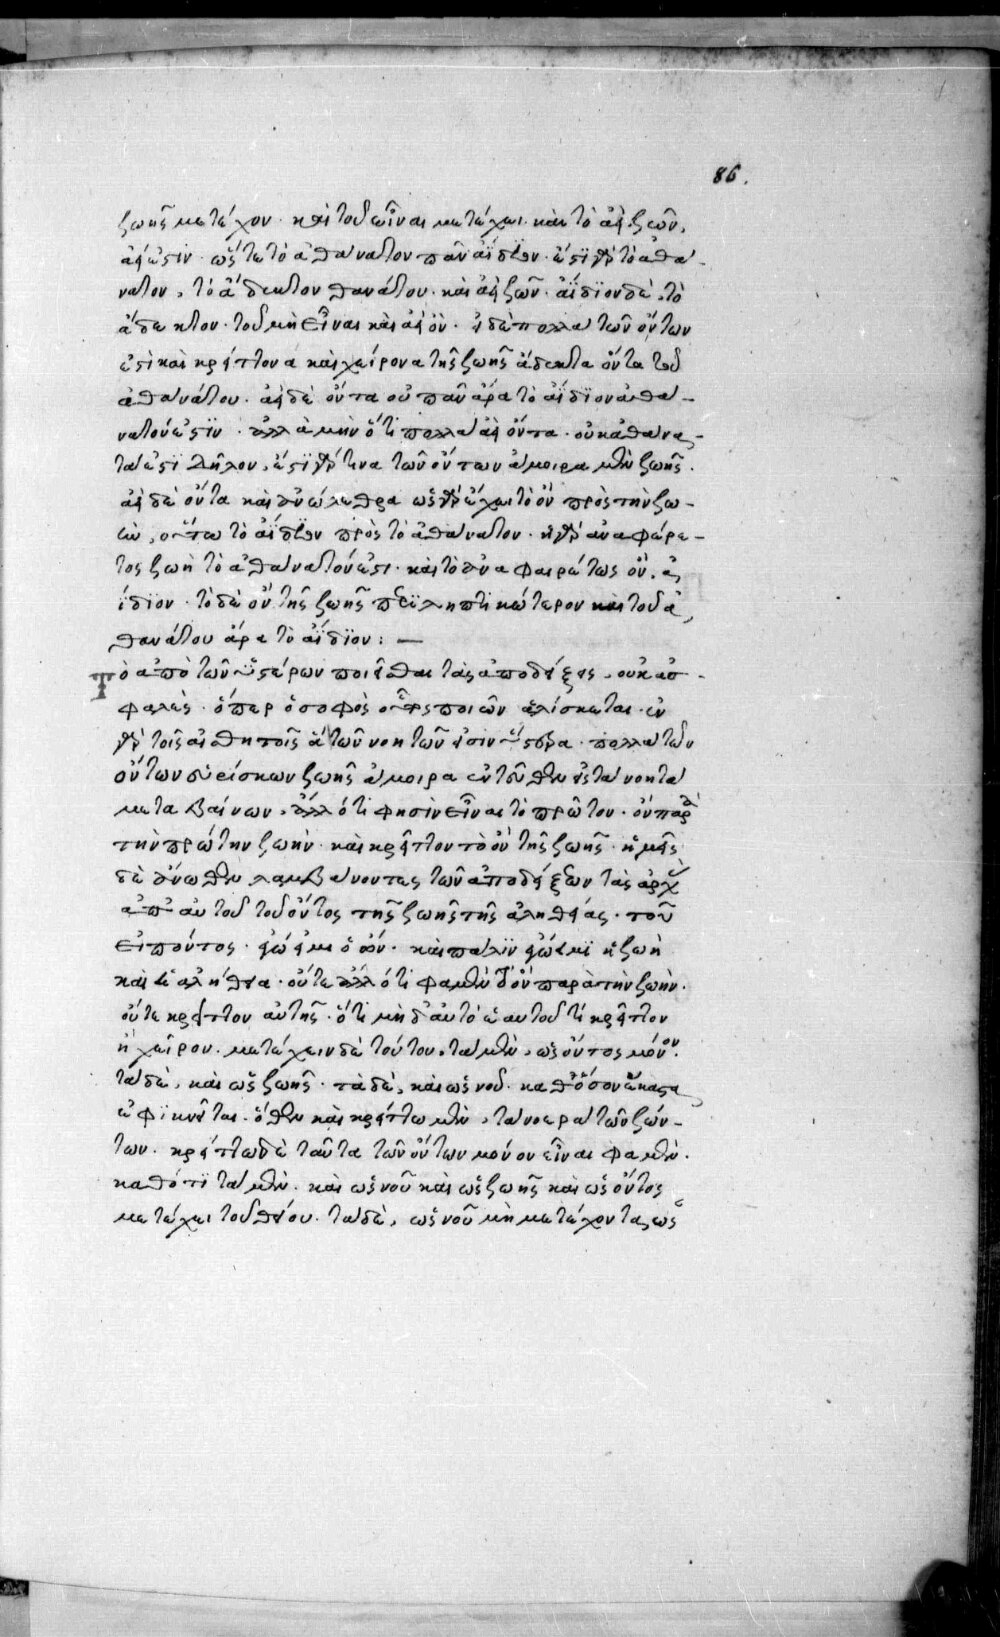 86.
ζωῆς μετέχον· καὶ τοῦ εἶναι μετέχει· καὶ τὸ ἀεὶ ζῶν,
ἀεί ἐστιν· ὥστε τὸ ἀθάνατον πᾶν ἀΐδιον· ἔστι γὰρ τὸ ἀθά-
νατον, τὸ ἄδεκτον θανάτου· καὶ ἀεὶ ζῶν· ἀΐδιον δὲ, τὸ
ἄδεκτον τοῦ μὴ εἶναι καὶ ἀεὶ ὄν· εἰ δὲ πολλὰ τῶν ὄντων
ἐστὶ καὶ κρείττονα καὶ χείρονα τῆς ζωῆς ἄδεκτα ὄντα τοῦ
θανάτου· ἀεὶ δὲ ὄντα οὐ πᾶν ἄρα τὸ ἀΐδιον ἀθά-
νατόν ἐστιν· ἀλλὰ μὴν ὅτι πολλὰ ἀεὶ ὄντα· οὐκ ἀθάνα-
τά ἐστι δῆλον, ἔστι γάρ τινα τῶν ὄντων ἄμοιρα μὲν ζωῆς·
ἀεὶ δὲ ὄντα καὶ ἀνώλεθρα ὡς γὰρ ἔχει τὸ ὂν πρὸς τὴν ζω-
ὴν, οὕτω τὸ ἀΐδιον πρὸς τὸ ἀθάνατον· ἡ γὰρ ἀναφαίρε-
τος ζωὴ τὸ ἀθάνατόν ἐστι· καὶ τὸ ἀναφαιρέτως ὂν, ἀ-
ΐδιον· τὸ δὲ ὂν τῆς ζωῆς περιληπτικώτερον καὶ τοῦ ἀ-
θανάτου ἄρα τὸ ἀΐδιον: —
Τὸ ἀπὸ τῶν ὑστέρων ποιεῖσθαι τὰς ἀποδείξεις, οὐκ ἀσ-
φαλὲς· ὅπερ ὁ σοφὸς οὗτος ποιῶν ἁλίσκεται· ἐν
γὰρ τοῖς αἰσθητοῖς ἃ τῶν νοητῶν εἰσιν ὕστερα· πολλὰ τῶν
ὄντων εὑρίσκων ζωῆς ἄμοιρα ἐντεῦθεν εἰς τὰ νοητὰ
μεταβαίνων· ἄλλό τί φησὶν εἶναι τὸ πρῶτον· ὂν παρὰ
τὴν πρώτην ζωὴν· καὶ κρεῖττον τὸ ὂν τῆς ζωῆς· ἡμεῖς
δὲ ἄνωθεν λαμβάνοντες τῶν ἀποδείξεων τὰς ἀρχὰς
ἀπ' αὐτοῦ τοῦ ὄντος τῆς ζωῆς τῆς ἀληθείας· τοῦ
εἰπόντος· ἐγώ εἰμι ὁ ὤν· καὶ πάλιν ἐγώ εἰμι ἡ ζωὴ
καὶ ἡ ἀλήθεια· οὔτε ἄλλό τί φαμὲν τὸ ὂν παρὰ τὴν ζωὴν·
οὔτε κρεῖττον αὐτῆς· ὅτι μὴ δ' αὐτὸ ἑαυτοῦ τὶ κρεῖττον
ἢ χεῖρον· μετέχειν δὲ τούτου, τὰ μὲν, ὡς ὄντος μόνον·
τὰ δὲ, καὶ ὡς ζωῆς· τὰ δὲ, καὶ ὡς νοῦ· καθόσον ἕκαστα
ἐφικνεῖται· ὅθεν καὶ κρείττω μὲν, τὰ νοερὰ τῶν ζών-
των· κρείττω δὲ ταῦτα τῶν ὄντων μόνον εἶναι φαμὲν·
καθότι τὰ μὲν· καὶ ὡς νοῦ καὶ ὡς ζωῆς καὶ ὡς ὄντος
μετέχει τοῦ θείου· τὰ δὲ, ὡς νοῦ μὴ μετέχοντα, ὡς